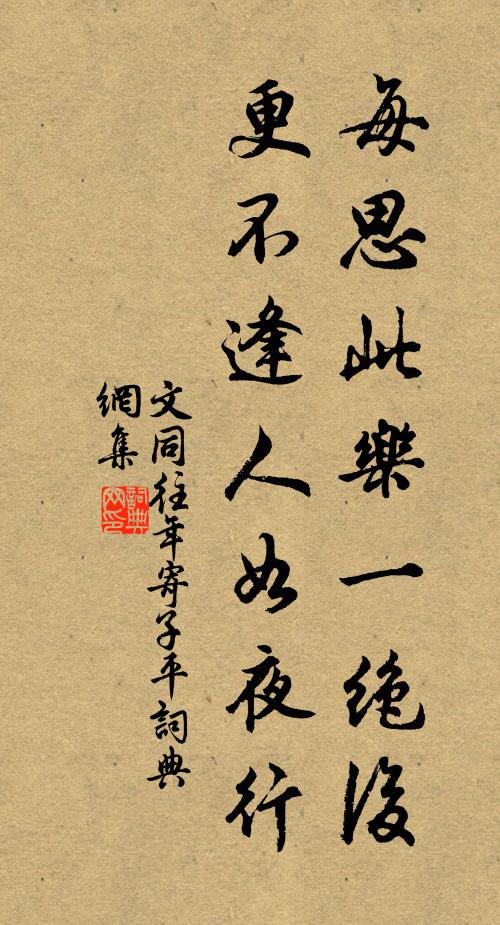 每思此樂一絶後
更不逢人如夜行
文同往年寄子平詞典
網集
詞典
网印